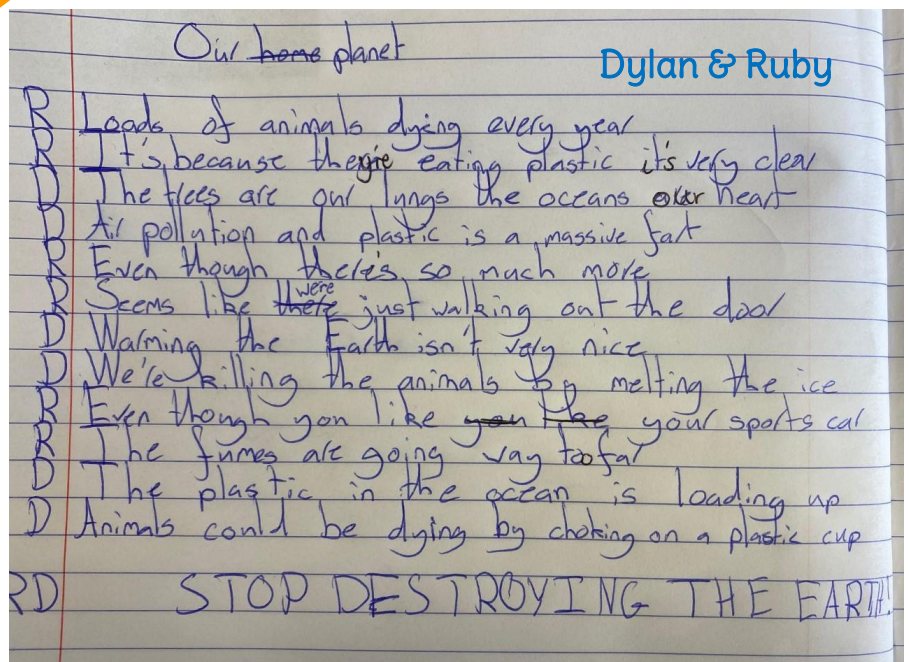 Our home planet
Dylan & Ruby
R Loads of animals dying every year
R It's because theyre eating plastic it's very clear
D The trees are our lungs the oceans our heart
D Air pollution and plastic is a massive fart
R Even though there's so much more
R Seems like there were just walking out the door
D Warming the Earth isn't very nice
D We're killing the animals by melting the ice
R Even though you like you like your sports car
R The fumes are going way too far
D The plastic in the ocean is loading up
D Animals could be dying by choking on a plastic cup
RD STOP DESTROYING THE EARTH!